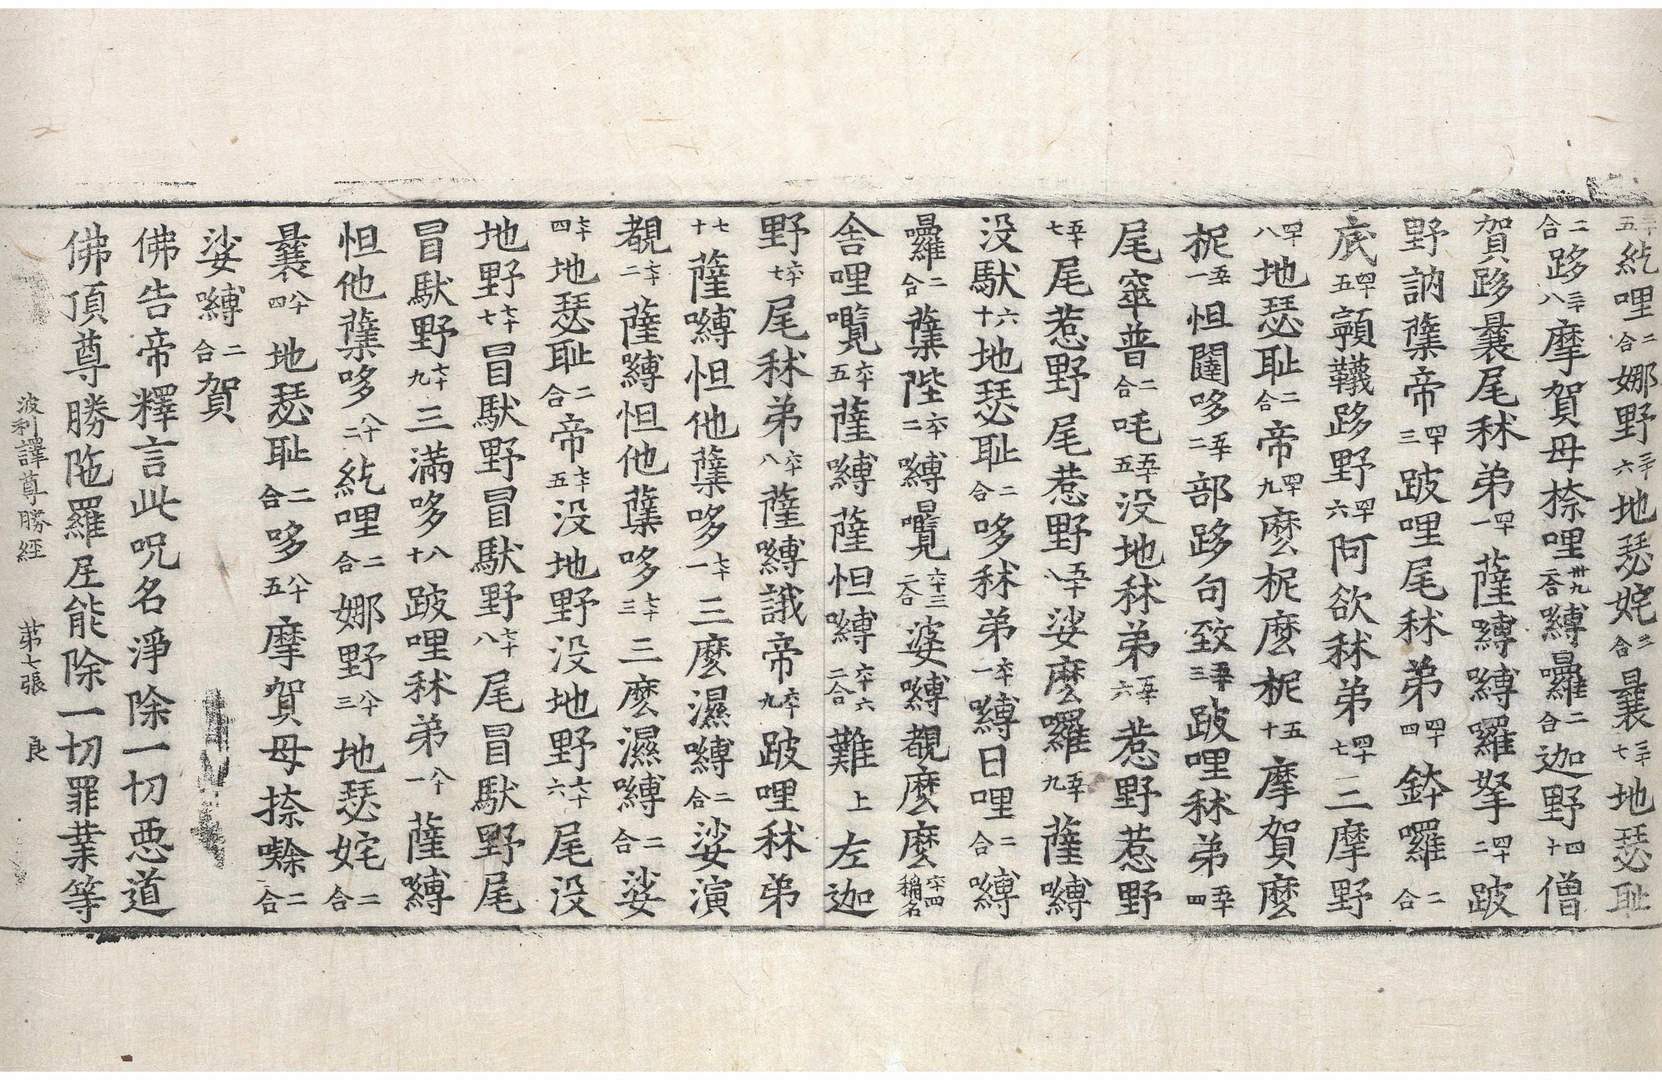 三十五紇哩二合娜野三十六地瑟姹二合曩三十七地瑟耻
二合跢三十八摩賀母捺哩卅九二合嚩囉二合迦野四十僧
賀跢曩尾秫弟四十一薩嚩嚩囉拏四十二跛
野訥蘖帝四十三跛哩尾秫弟四十四鉢囉二合
底四十五顊韈跢野四十六阿欲秫弟四十七三摩野
四十八地瑟耻二合帝四十九麽柅麽柅五十摩賀麽
柅五十一怛闥哆五十二部跢句致五十三跛哩秫弟五十四
尾窣普二合吒五十五没地秫弟五十六惹野惹野
五十七尾惹野尾惹野五十八娑麽囉五十九薩嚩
没馱六十地瑟耻二合哆秫弟六十一嚩日哩二合嚩
囉二合蘖陛六十二嚩覽六十三二合婆嚩覩麽麽六十四稱名
舍哩囕六十五薩嚩薩怛嚩六十六二合難上左迦
野六十七尾秫弟六十八薩嚩誐帝六十九跛哩秫弟
七十薩嚩怛他蘖哆七十一三麽濕嚩二合娑演
覩七十二薩嚩怛他蘖哆七十三三麽濕嚩二合娑
地瑟耻二合帝七十五没地野没地野七十六尾没
地野七十七冒馱野冒馱野七十八尾冒馱野尾
冒馱野七十九三滿哆八十跛哩秫弟八十一薩嚩
怛他蘖哆八十二紇哩二合娜野八十三地瑟姹二合
曩八十四地瑟耻二合哆八十五摩賀母捺㘑二合
娑嚩二合賀
佛告帝釋言此呪名淨除一切惡道
佛頂尊勝陁羅尼能除一切罪業等
波利譯尊勝經 第七張 良